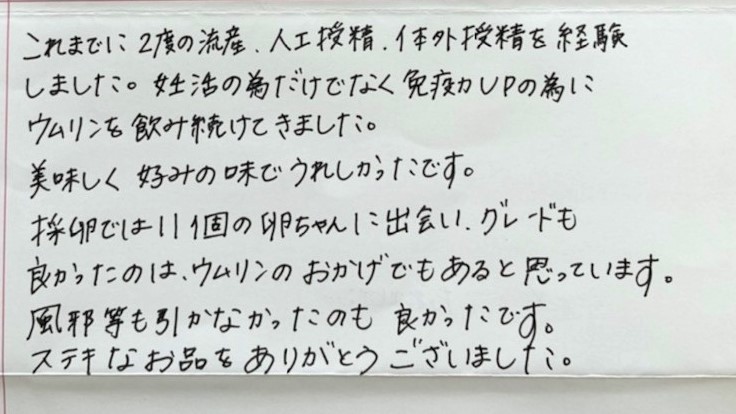 これまでに2度の流産、人工授精、体外授精を経験
しました。妊活の為だけでなく免疫力UPの為に
ウムリンを飲み続けてきました。
美味しく好みの味でうれしかったです。
採卵では11個の卵ちゃんに出会い、グレードも
良かったのは、ウムリンのおかげでもあると思っています。
風邪等も引かなかったのも良かったです。
ステキなお品をありがとうございました。